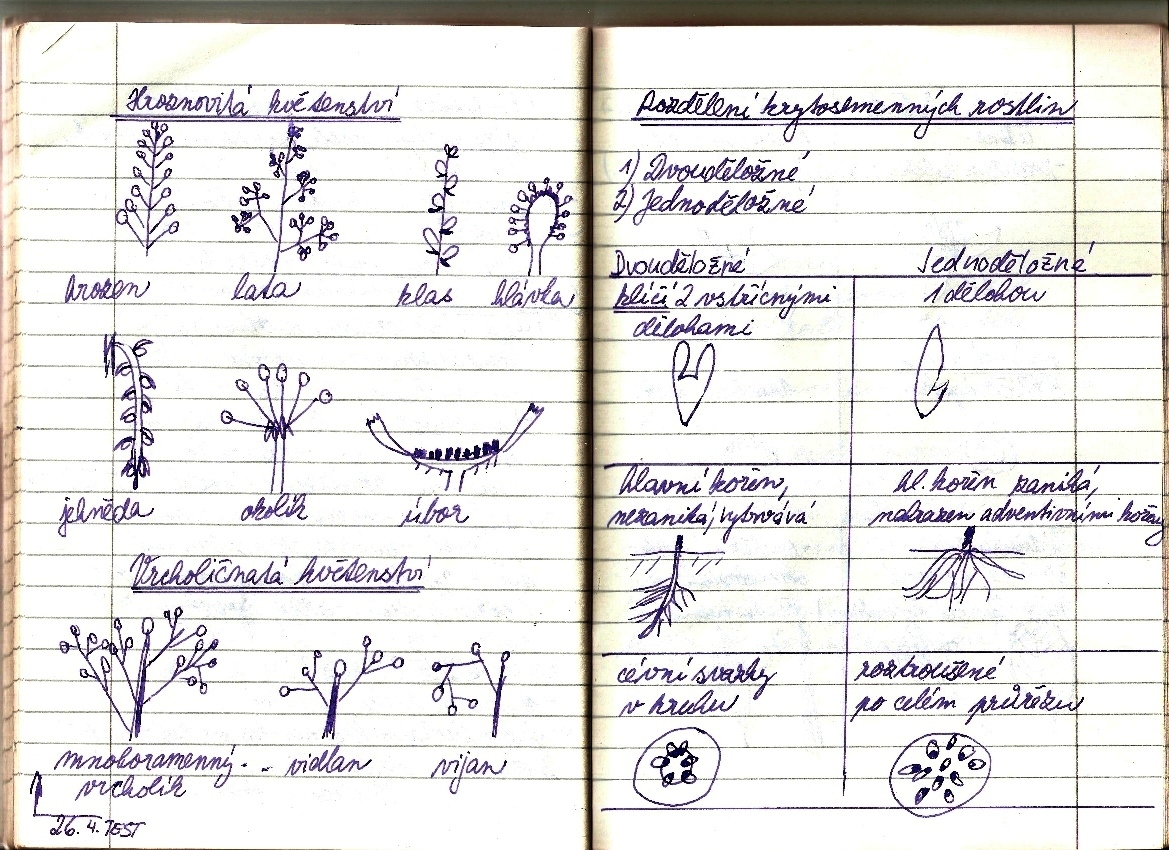 Hroznovitá květenství
hrozen lata klas hlávka
jehněda okolík úbor
Vrcholičnatá květenství
mnohoramenný.. vidlan vijan
vrcholík
26. 4. TEST
Rozdělení krytosemenných rostlin
1) Dvouděložné
2) Jednoděložné
Dvouděložné Jednoděložné
klíčí 2 vstřícnými 1 dělohou
dělohami
hlavní kořen, hl. kořen zaniká,
nezaniká, vytrvává nahrazen adventivními kořeny
cévní svazky roztroušené
v kruhu po celém průřezu